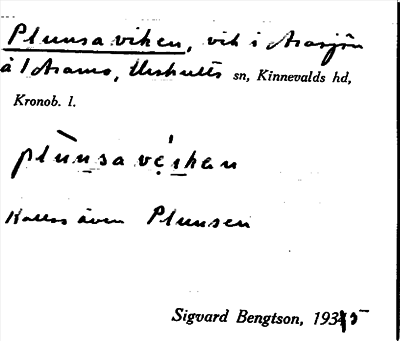 Plunsaviken, vik i Asasjön
å 1 Asama, Urshults sn, Kinnevalds hd,
Kronob. l.
plùnsavẹ́i̱kan
Kallas även Plunsen
Sigvard Bengtson, 1935